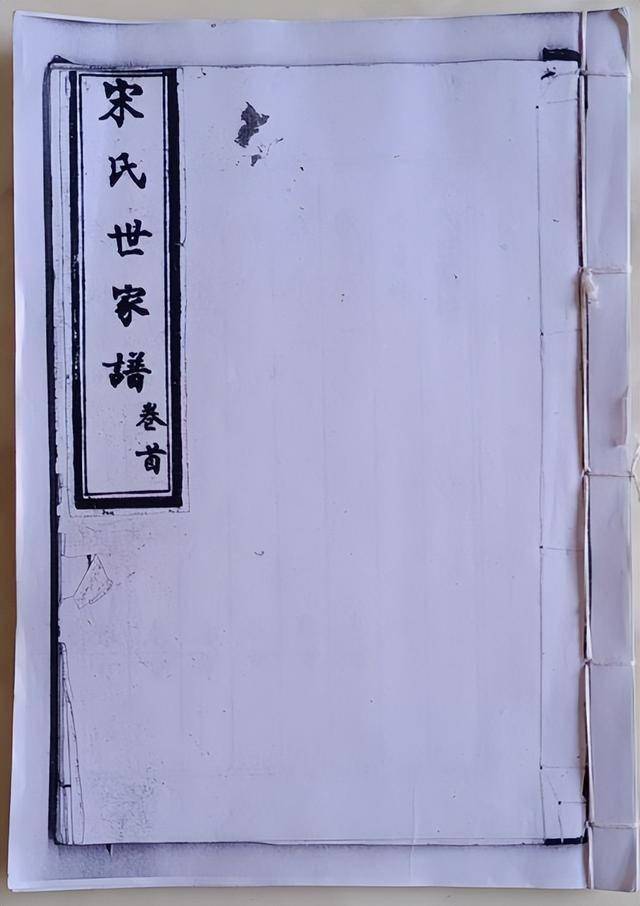 宋氏世家譜
卷首